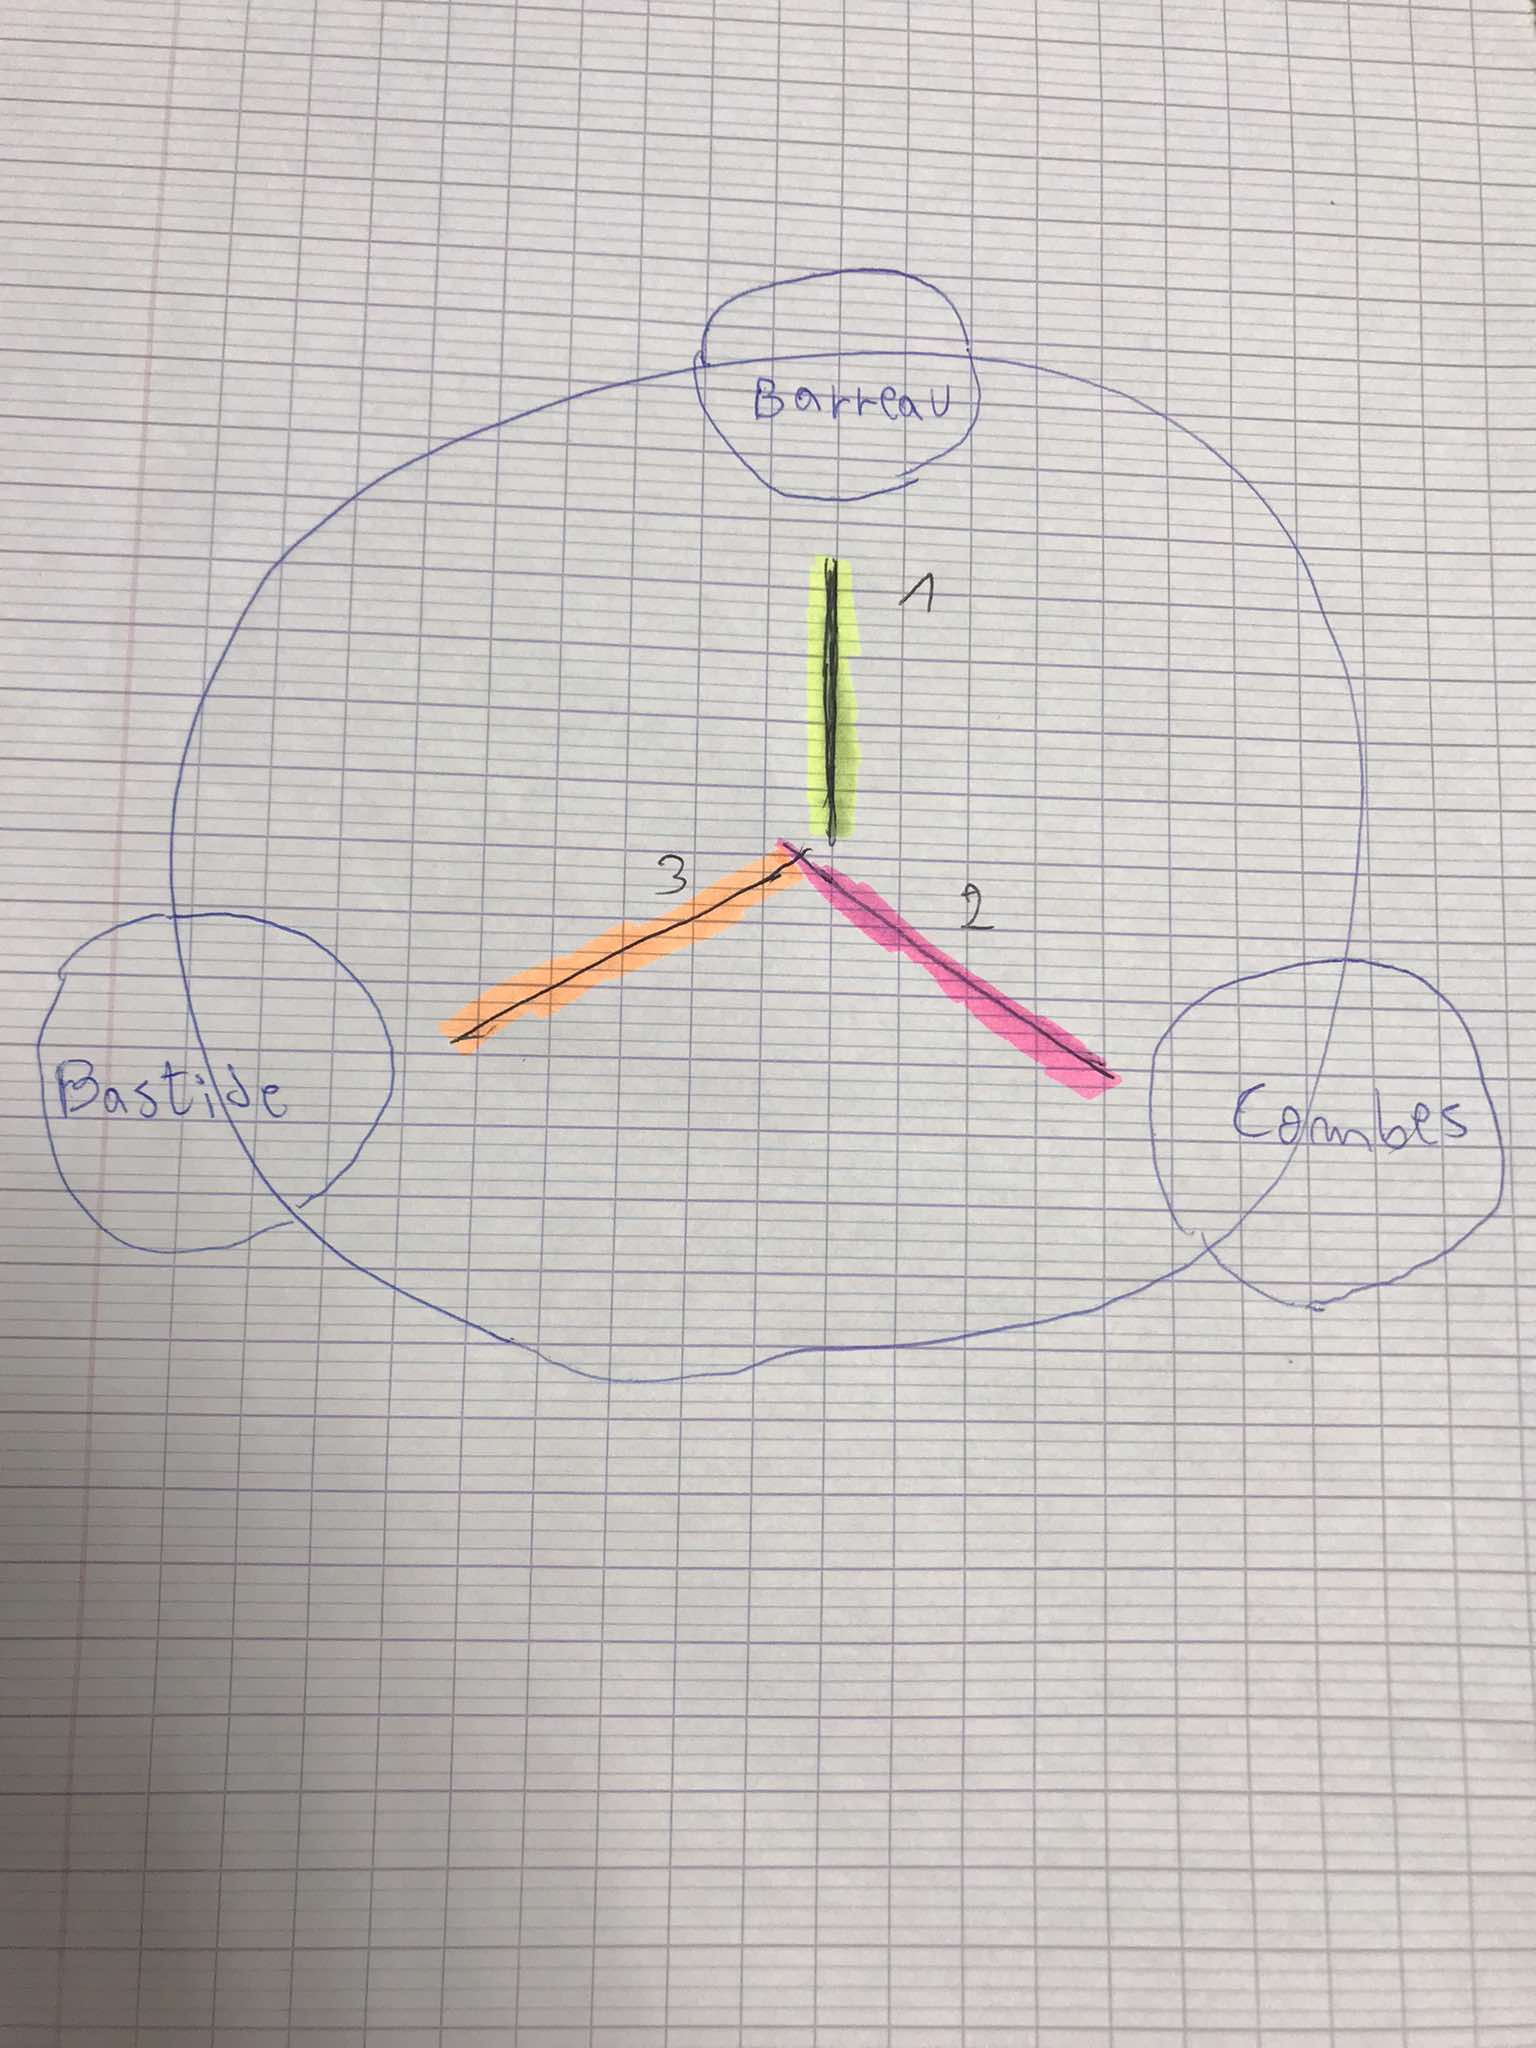 Barreau
1
3
2
Bastide
Combes